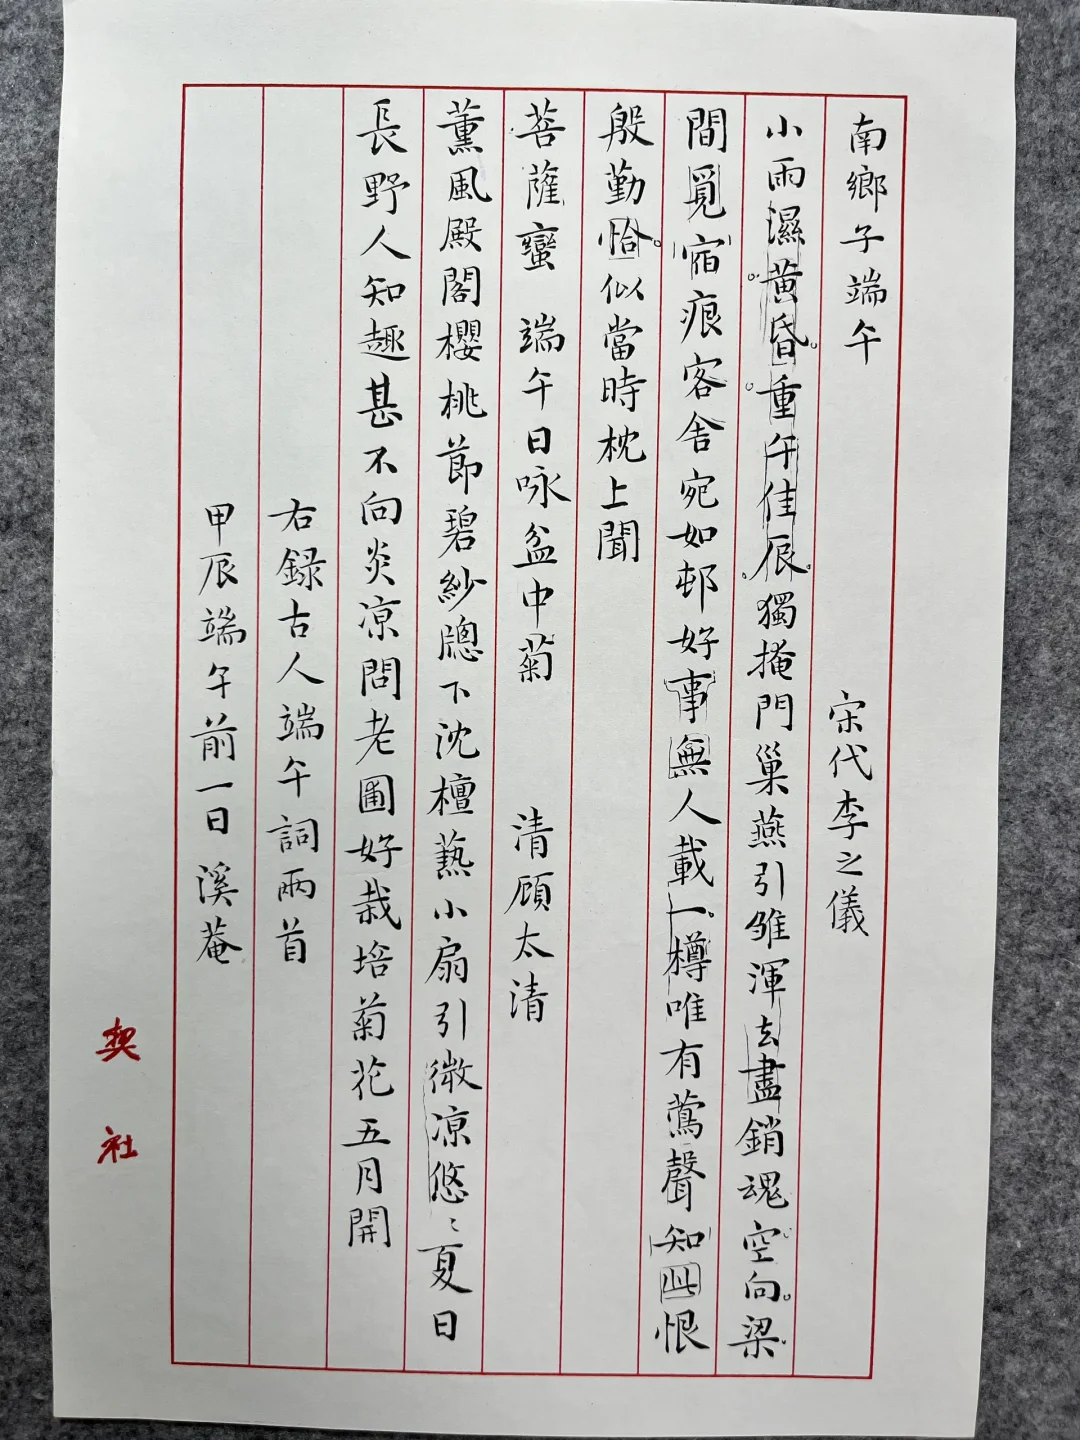 南鄉子端午 宋代李之儀
小雨濕黄昏重午佳辰獨掩門巢燕引雏渾去盡銷魂空向梁
間覓宿痕客舎宛如邨好事無人載一樽唯有鶯聲知此恨
殷勤恰似當時枕上聞
菩薩蠻 端午日咏盆中菊 清顾太清
薰風殿閣櫻桃節碧紗牕下沈檀爇小扇引微凉悠〻夏日
長野人知趣甚不向炎凉問老圃好栽培菊花五月開
右録古人端午詞兩首
甲辰端午前一日溪菴
契社